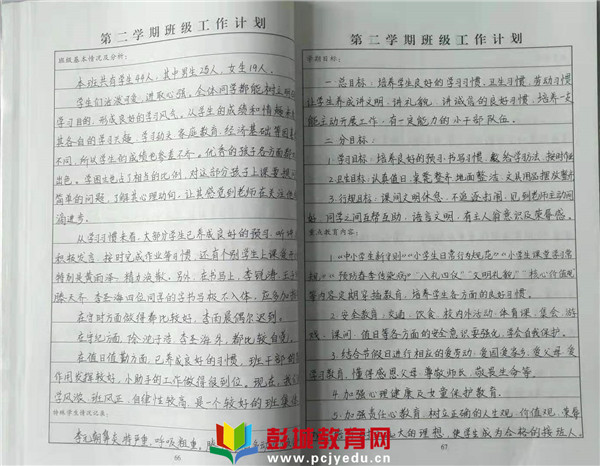 第二学期班级工作计划
班级基本情况及分析:
本班共有学生44人,其中男生25人,女生19人。
学生们活泼可爱,进取心强,全体同学都能树立明
学习目的,形成良好的学习风气。从学生的成绩和情趣来
其各自的学习兴趣、学习动力、家庭教育、经济基础等因素
不同,所以学生的成绩也参差不齐。优秀的孩子各方面都
出色。学困生占了相当的比例,对这部分孩子上课要提
简单的问题,了解其心理动向,让其感觉到老师在关注他
滴进步。
从学习习惯来看,大部分学生已养成良好的预习、听讲
积极发言、按时完成作业等习惯,还有个别学生上课坐
特别是黄雨涵,精力涣散。另外,在书写上,李锐涛、王
腾天齐、李圣海四位同学的字书写极不入体,在多加
在守时方面做得都比较好,李雨晨偶尔迟到。
在守纪方面,除沈子浩、李圣海外,都比较自觉。
在值日值勤方面,已养成良好的习惯,班干部的
作用发挥较好,小助手的工作做得很到位。现在,我们
学风浓,班风正,自律性较高,是一个较好的班集体
特殊学生情况记录:
李飞朝鼻炎特严重,呼吸粗重,
66
第二学期班级工作计划
学期目标:
一.总目标:培养学生良好的学习习惯、卫生习惯、劳动习惯
让学生养成讲文明、讲礼貌、讲诚信的良好习惯,培养一支
能主动开展工作,有一定能力的小干部队伍。
二.分目标:
1.学习目标:培养良好的预习、书写习惯,
2.卫生目标:认真值日,桌凳整齐,地面整洁,文具用品摆放整齐
3.行规目标:课间文明休息,不追逐打闹,见到老师主动问
好,同学之间互帮互助,语言文明,有主人翁意识及荣誉感。
重点教育内容:
1."中小学生新守则""小学生日常行为规范""小学生课堂学习常
规""预防春季传染病""八礼四仪""文明礼貌""核心价值观
等内容定期穿插教育,培养学生各方面的良好习惯。
2.安全教育:交通、饮食、校内外活动、体育课、集会、游
戏、课间、值日等各方面的安全意识要强化,学会自我保护。
3.结合节假日进行相应的爱劳动、爱国爱家乡、爱父母、爱
学习教育,懂得感恩父母、尊敬师长、敬畏生命等。
4.加强心理健康及女童保护教育。
5.加强责任心教育,树立正确的人生观、价值观、
大的理想,使学生成为合格的接班人。
67
彭城教育网
www.pcjyedu.cn